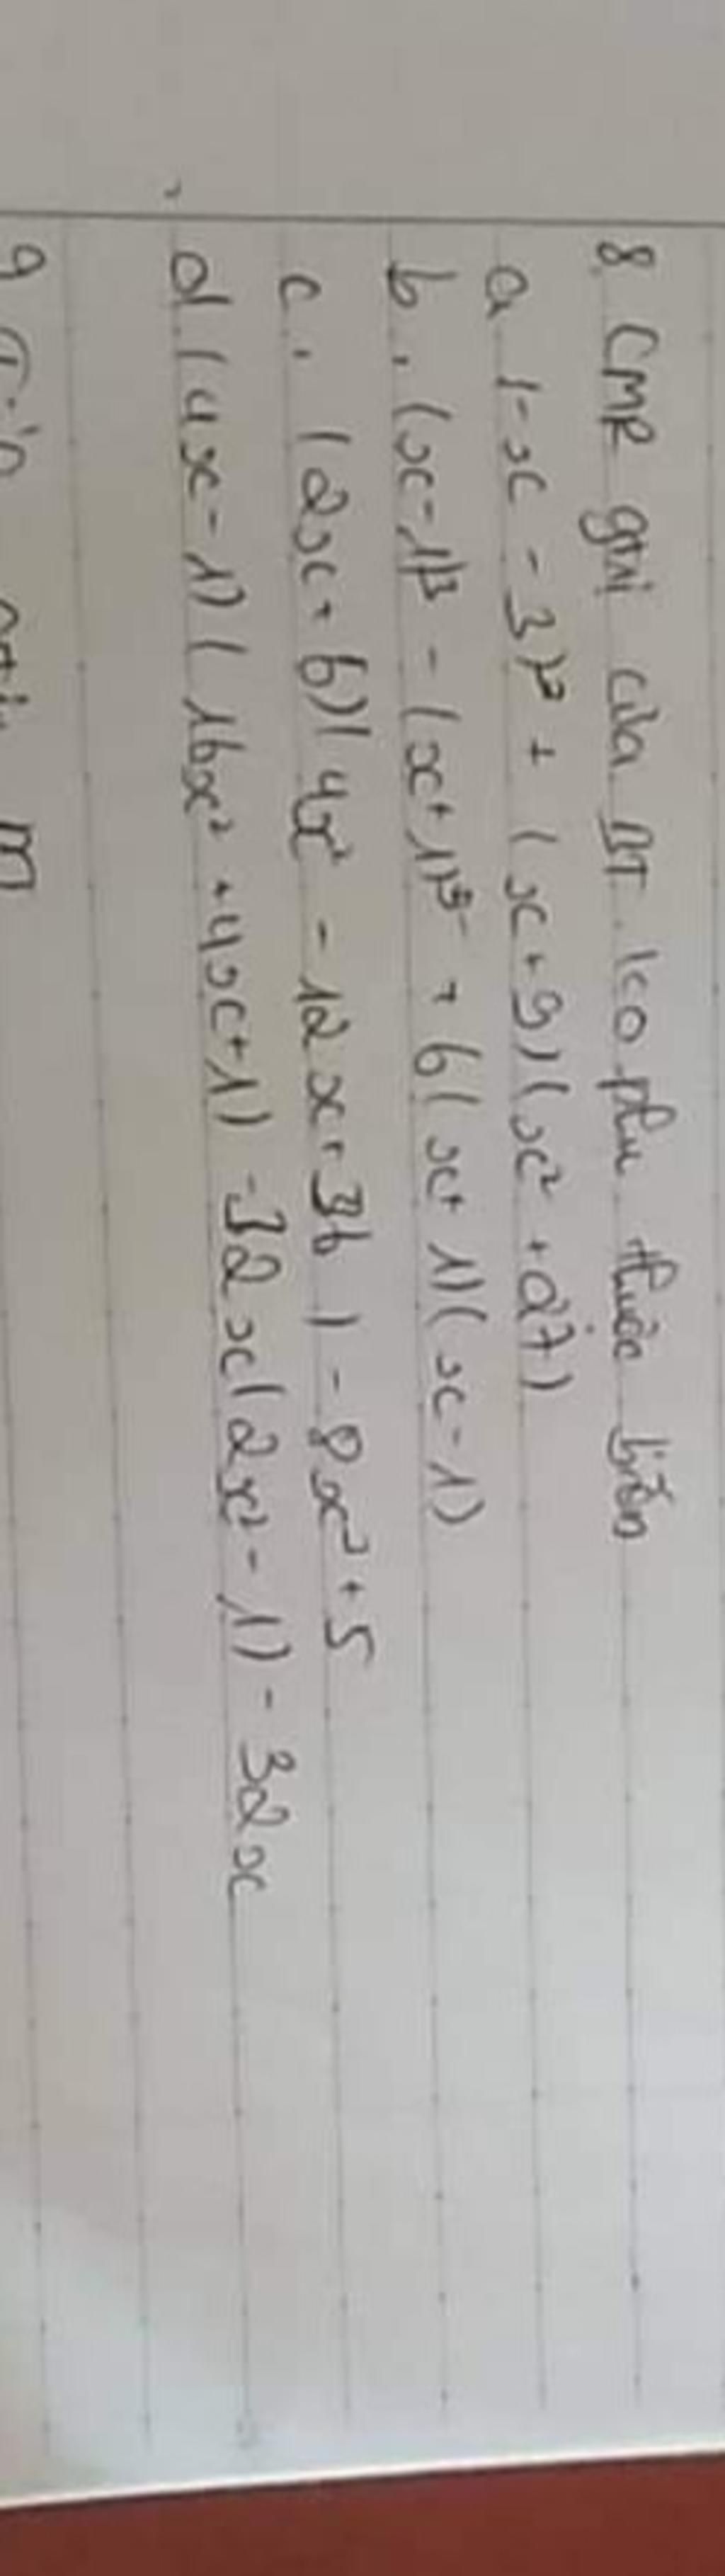 8 CMR gtrị của BT ko phụ thuộc biến
a (-x - 3)³ + (x + 9)(x² + 27)
b, (x - 1)³ - (x + 1)³ + 6(x + 1)(x - 1)
c, (2x + 6)(4x² - 12x + 36) - 8x³ + 5
d (4x - 1)(16x² + 4x + 1) - 32x(2x² - 1) - 32x
9
m